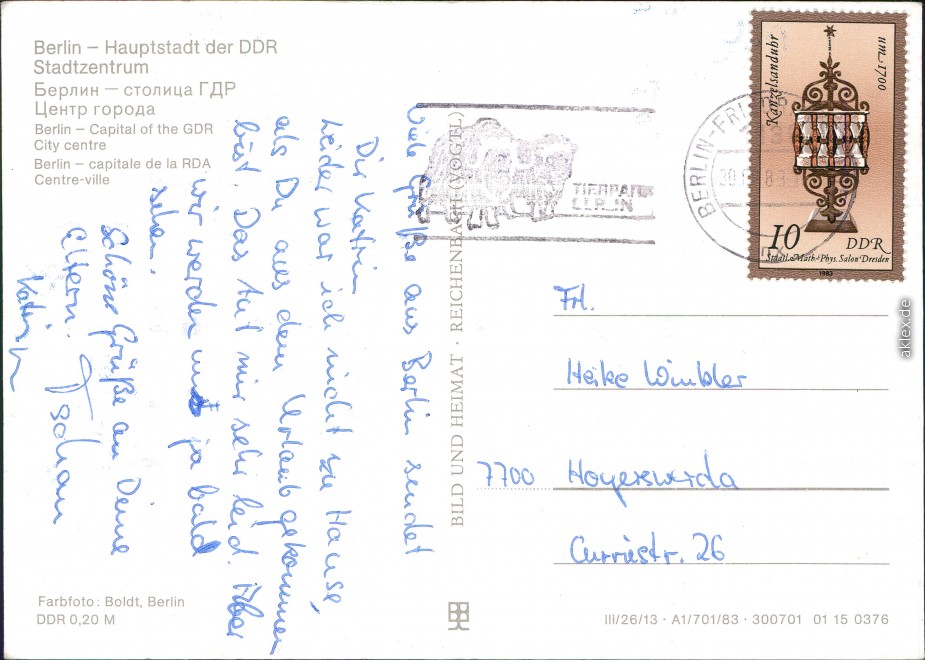 Berlin – Hauptstadt der DDR
Stadtzentrum
Берлин — столица ГДР
Центр города
Berlin – Capital of the GDR
City centre
Berlin – capitale de la RDA
Centre-ville
Viele Grüße aus Berlin sendet
Dir Katrin
Leider war ich nicht zu Hause,
als Du aus dem Urlaub gekommen
bist. Das tut mir sehr leid. Aber
wir werden uns ja bald
sehen.
Schöne Grüße an Deine
Eltern.
Katrin
Farbfoto: Boldt, Berlin
DDR 0,20 M
BILD UND HEIMAT · REICHENBACH (VOGTL)
TIERPARK
BERLIN
BERLIN-FRI
Kanzelsanduhr
um 1700
10 DDR
Staatl. Math.-Phys. Salon Dresden
1983
Frl.
Heike Winkler
7700 Hoyerswerda
Curriestr. 26
III/26/13 · A1/701/83 · 300701 01 15 0376
aklex.de